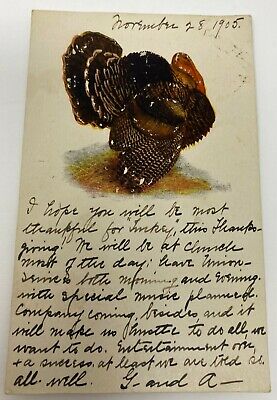 November 28, 1905.
I hope you will be most
thankful for turkey, this Thanks-
giving. We will be at Church
most of the day; have Union-
service both morning and evening.
with special music planned.
Company coming, besides, and it
will make us hustle to do all, we
want to do. Entertainment over,
+ a success, at least we are told so.
all well. G. and A—